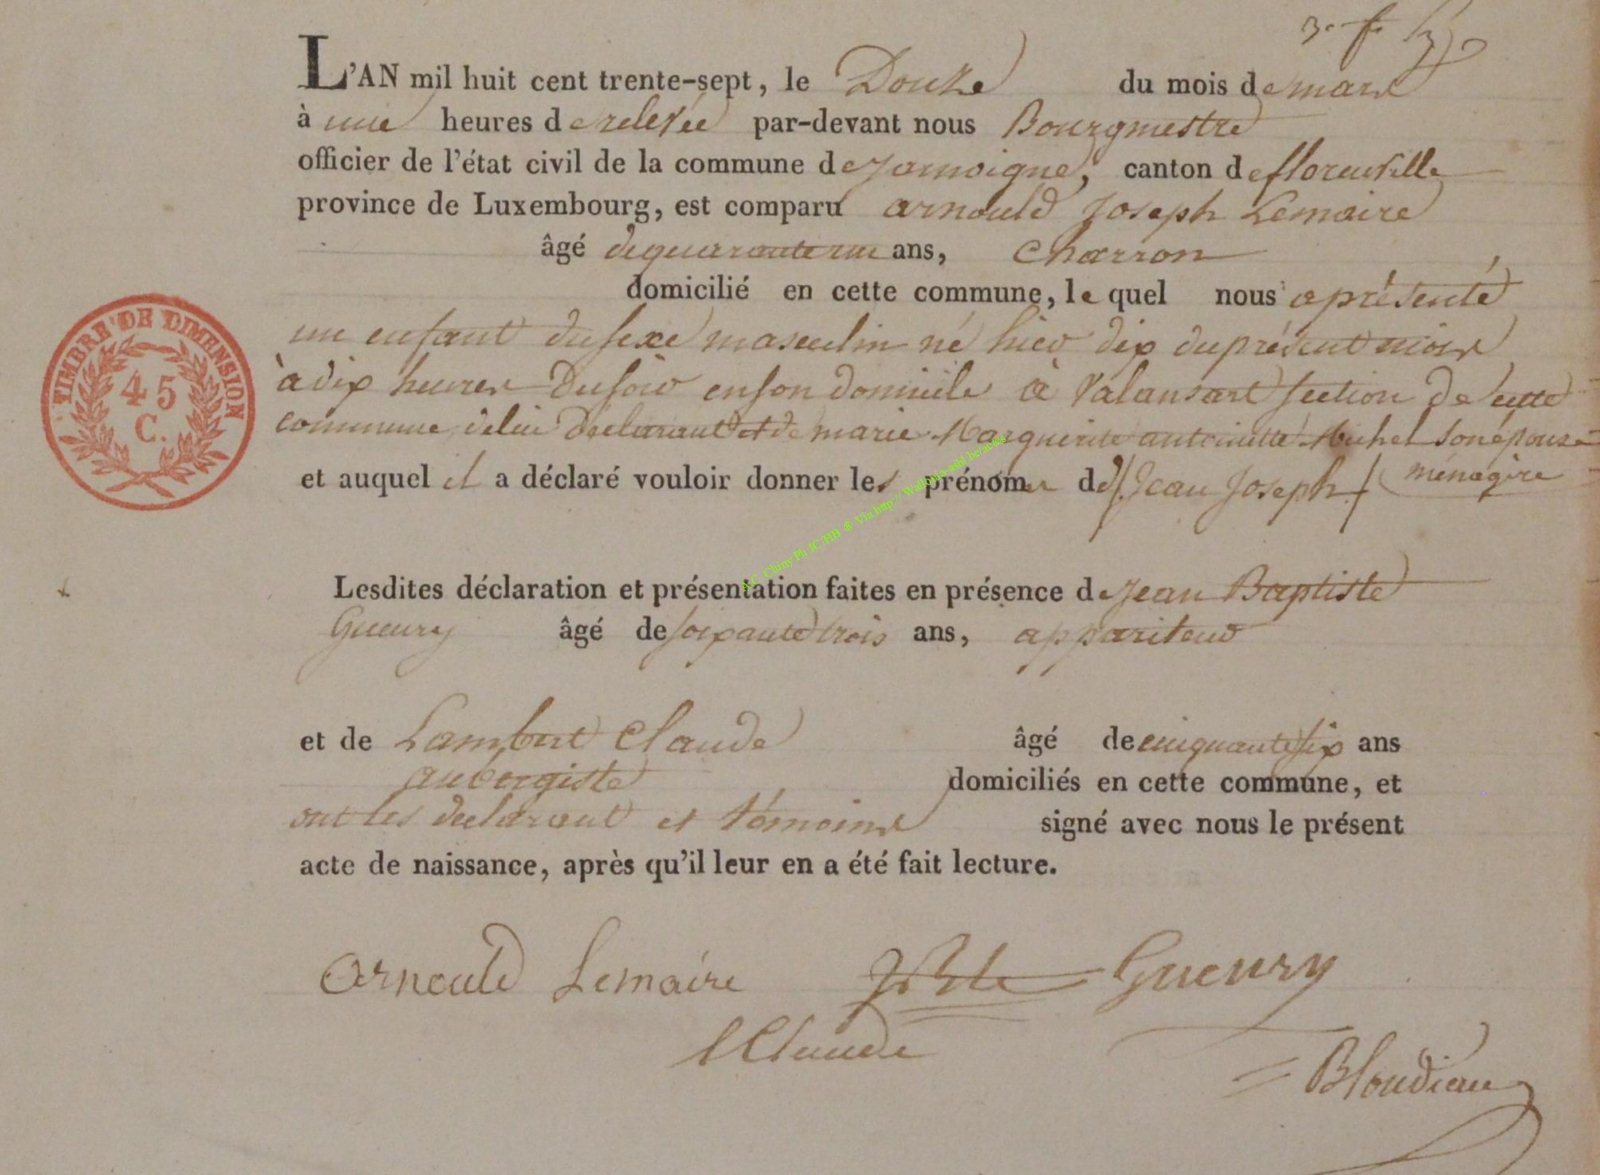 L'AN mil huit cent trente-sept, le Douze du mois de mars
à une heures de relevée par-devant nous Bourgmestre
officier de l'état civil de la commune de Jamoigne, canton de florenville
province de Luxembourg, est comparu arnould Joseph Lemaire
âgé de quarante un ans, Charron
domicilié en cette commune, le quel nous a présenté
un enfant du sexe masculin né hier dix du présent mois
à dix heures Du soir en son domicile à Valansart section de cette
commune, de lui Déclarant et de marie Marguerite antoinette Michel son épouse
ménagère
et auquel il a déclaré vouloir donner les prénoms de Jean Joseph
Lesdites déclaration et présentation faites en présence de Jean Baptiste
Gueury âgé de soixante trois ans, appariteur
et de Lambert Claude âgé de cinquante six ans
aubergiste domiciliés en cette commune, et
ont les declarant et témoins signé avec nous le présent
acte de naissance, après qu'il leur en a été fait lecture.
Arnould Lemaire JBte Gueury
l Claude
Blondiau
TIMBRE DE DIMENSION
45
C.